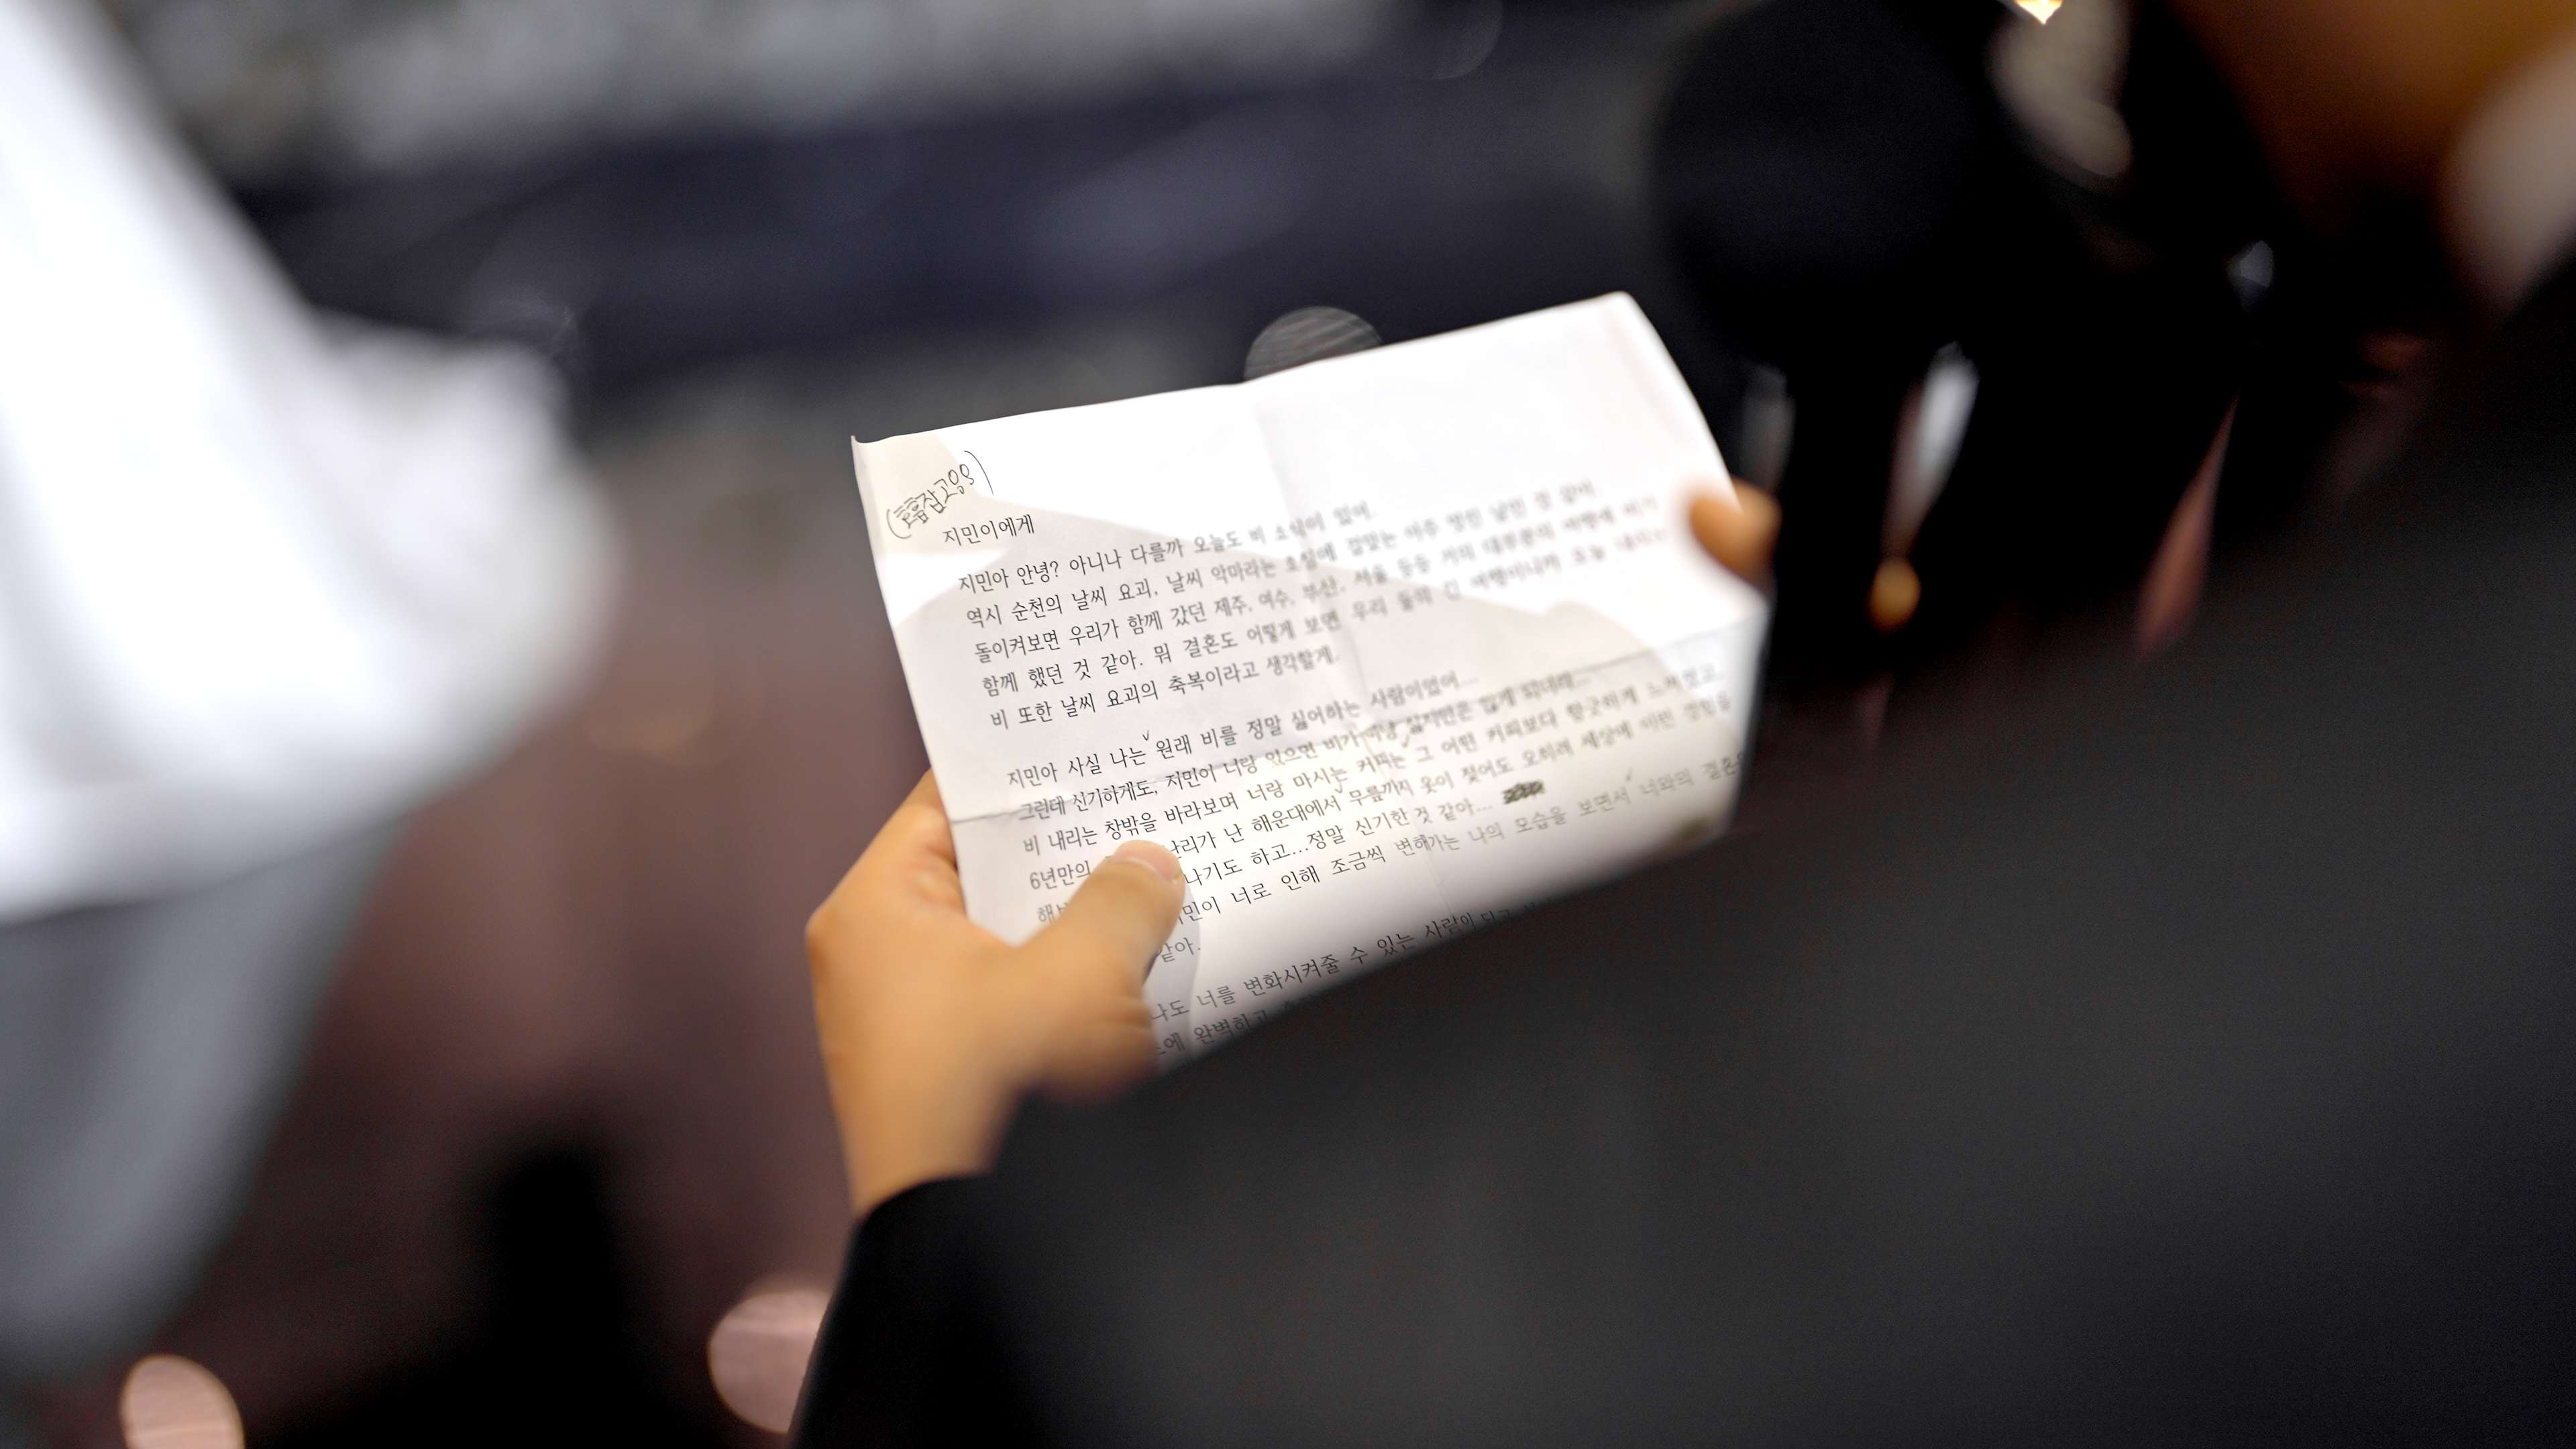 (호흡잡고용용)
지민이에게
지민아 안녕? 아니나 다를까 오늘도 비 소식이 있어.
역시 순천의 날씨 요괴, 날씨 악마라는 호칭에 걸맞는 아주 멋진 날인 것 같아.
돌이켜보면 우리가 함께 갔던 제주, 여수, 부산, 서울 등등 거의 대부분의 여행에 비가
함께 했던 것 같아. 뭐 결혼도 어떻게 보면 우리 둘의 긴 여행이니까 오늘 내리는
비 또한 날씨 요괴의 축복이라고 생각할게.
지민아 사실 나는 원래 비를 정말 싫어하는 사람이었어...
그런데 신기하게도, 지민이 너랑 있으면 비가 마냥 싫지만은 않게 되더라...
비 내리는 창밖을 바라보며 너랑 마시는 커피는 그 어떤 커피보다 향긋하게 느껴졌고,
6년만의 난리가 난 해운대에서 무릎까지 옷이 젖어도 오히려 세상에 이런 경험을
해 나기도 하고...정말 신기한 것 같아...
민이 너로 인해 조금씩 변해가는 나의 모습을 보면서 너와의 결혼
같아.
나도 너를 변화시켜줄 수 있는 사람이 되고
에 완벽하고